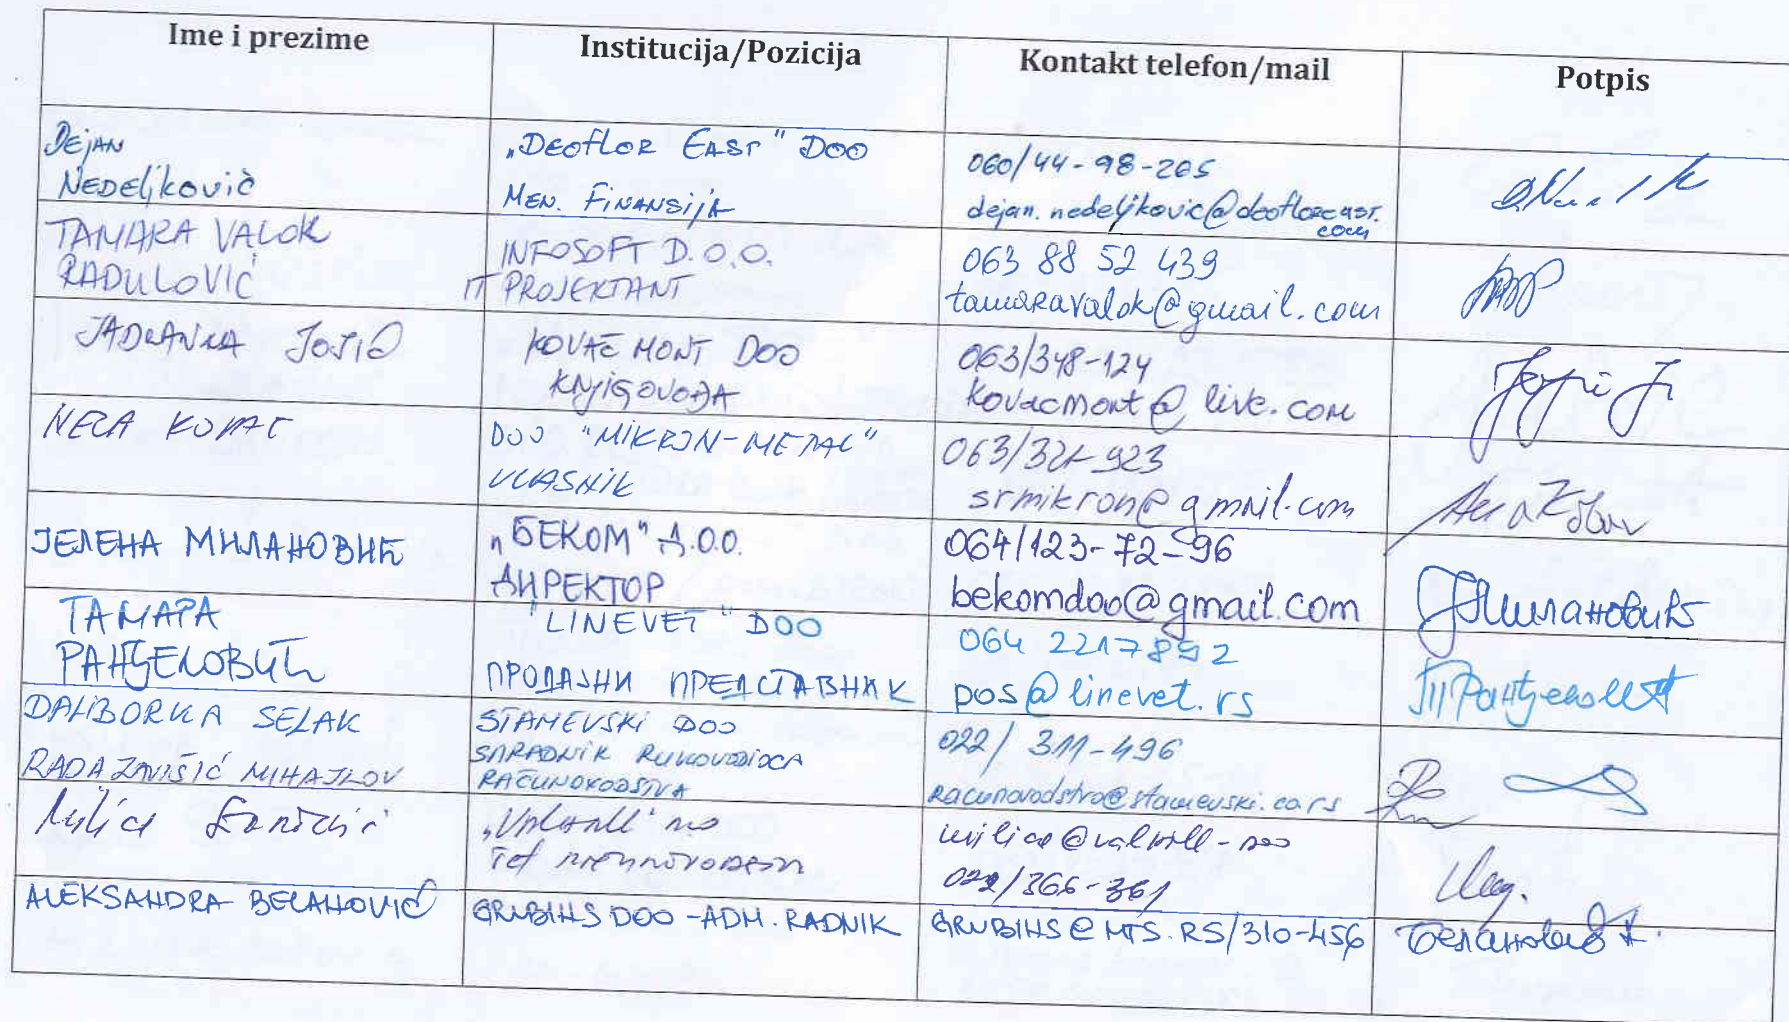 Ime i prezime
Institucija/Pozicija
Kontakt telefon/mail
Potpis
Dejan
Nedeljković
„Deoflor East" DOO
Men. Finansija
060/44-98-205
dejan.nedeljkovic@deofloreast.
com
TAMARA VALOK
RADULOVIĆ
INFOSOFT D.O.O.
IT PROJEKTANT
063 88 52 439
tamaravalok@gmail.com
JADRANKA
KOVAČ MONT DOO
KNJIGOVOĐA
063/348-124
kovacmont@live.com
KOVAČ
DOO "MIKRON-METAL"
VLASNIK
063/321-923
srmikron@gmail.com
ЈЕЛЕНА МИЛАНОВИЋ
„БЕКОМ" Д.О.О.
ДИРЕКТОР
064/123-72-96
bekomdoo@gmail.com
Ј Милановић
ТАМАРА
РАНЂЕЛОВИЋ
"LINEVET" DOO
ПРОДАЈНИ ПРЕДСТАВНИК
064 2217892
pos@linevet.rs
DALIBORKA SELAK
RADA ZAVIŠIĆ MIHAJLOV
STAMEVSKI DOO
SARADNIK RUKOVODIOCA
RAČUNOVODSTVA
022/311-496
racunovodstvo@stamevski.co.rs
Milica
022/366-361
ALEKSANDRA BELANOVIĆ
GRUBIHS DOO - ADM. RADNIK
GRUBIHS@MTS.RS/310-456